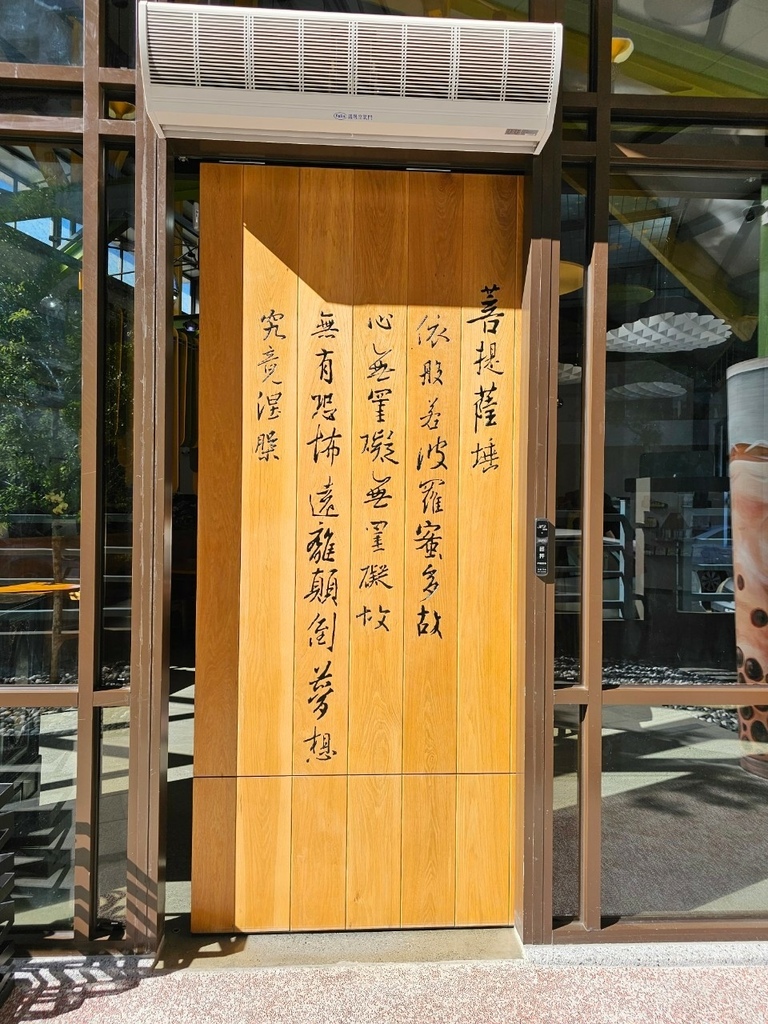 菩提薩埵
依般若波羅蜜多故
心無罣礙無罣礙故
無有恐怖遠離顛倒夢想
究竟涅槃